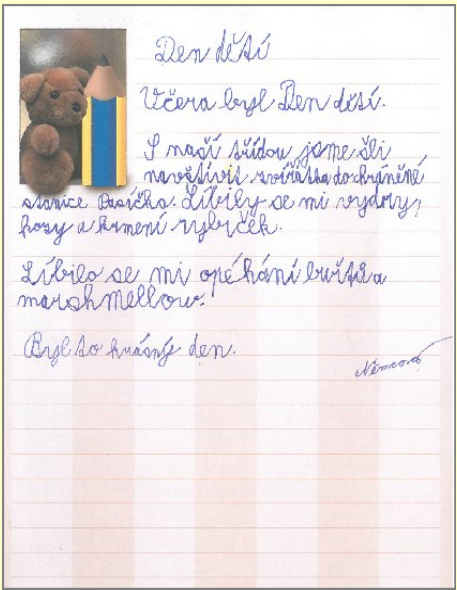 Den dětí
Včera byl Den dětí.
S naší třídou jsme šli
navštívit zvířátka do chráněné
stanice Pasíčka. Líbily se mi vydry,
kozy a krmení rybiček.
Líbilo se mi opékání buřtů a
marshmellow.
Byl to krásný den.
Němcová